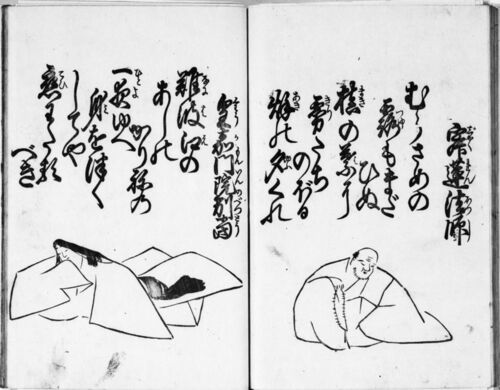 寂蓮法師
むらさめの
露もまだ
ひぬ
槙の葉に
霧たち
のぼる
秋の夕ぐれ
皇嘉門院別当
難波江の
あしの
かりねの
一夜ゆへ
身をつく
してや
恋わたる
べき